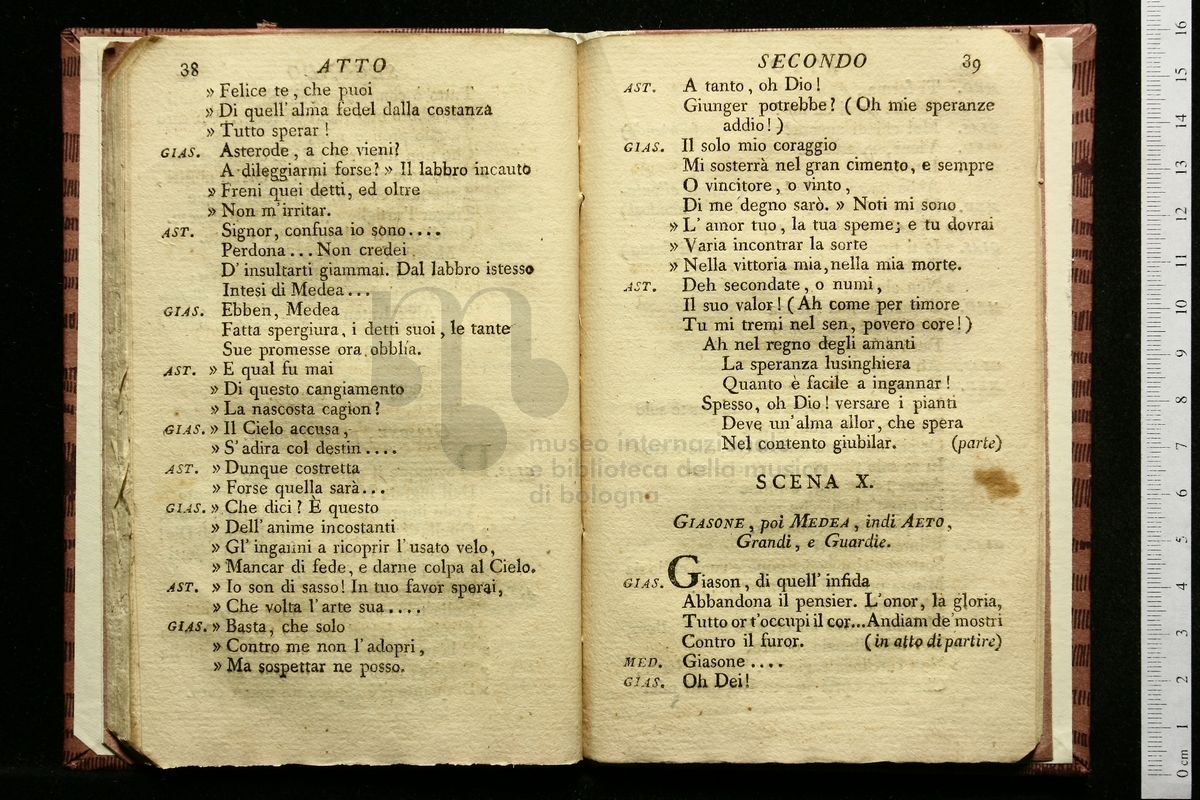 38 ATTO
» Felice te, che puoi
» Di quell' alma fedel dalla costanza
» Tutto sperar !
GIAS. Asterode, a che vieni?
A dileggiarmi forse? » Il labbro incauto
» Freni quei detti, ed oltre
» Non m'irritar.
AST. Signor, confusa io sono....
Perdona... Non credei
D' insultarti giammai. Dal labbro istesso
Intesi di Medea...
GIAS. Ebben, Medea
Fatta spergiura, i detti suoi, le tante
Sue promesse ora obblía.
AST. » E qual fu mai
» Di questo cangiamento
» La nascosta cagion?
GIAS. » Il Cielo accusa,
» S' adira col destin....
AST. » Dunque costretta
» Forse quella sarà...
GIAS. » Che dici? E questo
» Dell' anime incostanti
» Gl' inganni a ricoprir l' usato velo,
» Mancar di fede, e darne colpa al Cielo.
AST. » Io son di sasso! In tuo favor sperai,
» Che volta l' arte sua....
GIAS. » Basta, che solo
» Contro me non l' adopri,
» Ma sospettar ne posso.
SECONDO 39
AST. A tanto, oh Dio!
Giunger potrebbe? (Oh mie speranze
addio!)
GIAS. Il solo mio coraggio
Mi sosterrà nel gran cimento, e sempre
O vincitore, o vinto,
Di me degno sarò. » Noti mi sono
» L' amor tuo, la tua speme; e tu dovrai
» Varia incontrar la sorte
» Nella vittoria mia, nella mia morte.
AST. Deh secondate, o numi,
Il suo valor! (Ah come per timore
Tu mi tremi nel sen, povero core!)
Ah nel regno degli amanti
La speranza lusinghiera
Quanto è facile a ingannar!
Spesso, oh Dio! versare i pianti
Deve un'alma allor, che spera
Nel contento giubilar. (parte)
SCENA X.
GIASONE, poi MEDEA, indi AETO,
Grandi, e Guardie.
GIAS. Giason, di quell' infida
Abbandona il pensier. L'onor, la gloria,
Tutto or t'occupi il cor...Andiam de' mostri
Contro il furor. (in atto di partire)
MED. Giasone....
GIAS. Oh Dei!
museo internazionale
e biblioteca della musica
di bologna
0 cm 1 2 3 4 5 6 7 8 9 10 11 12 13 14 15 16